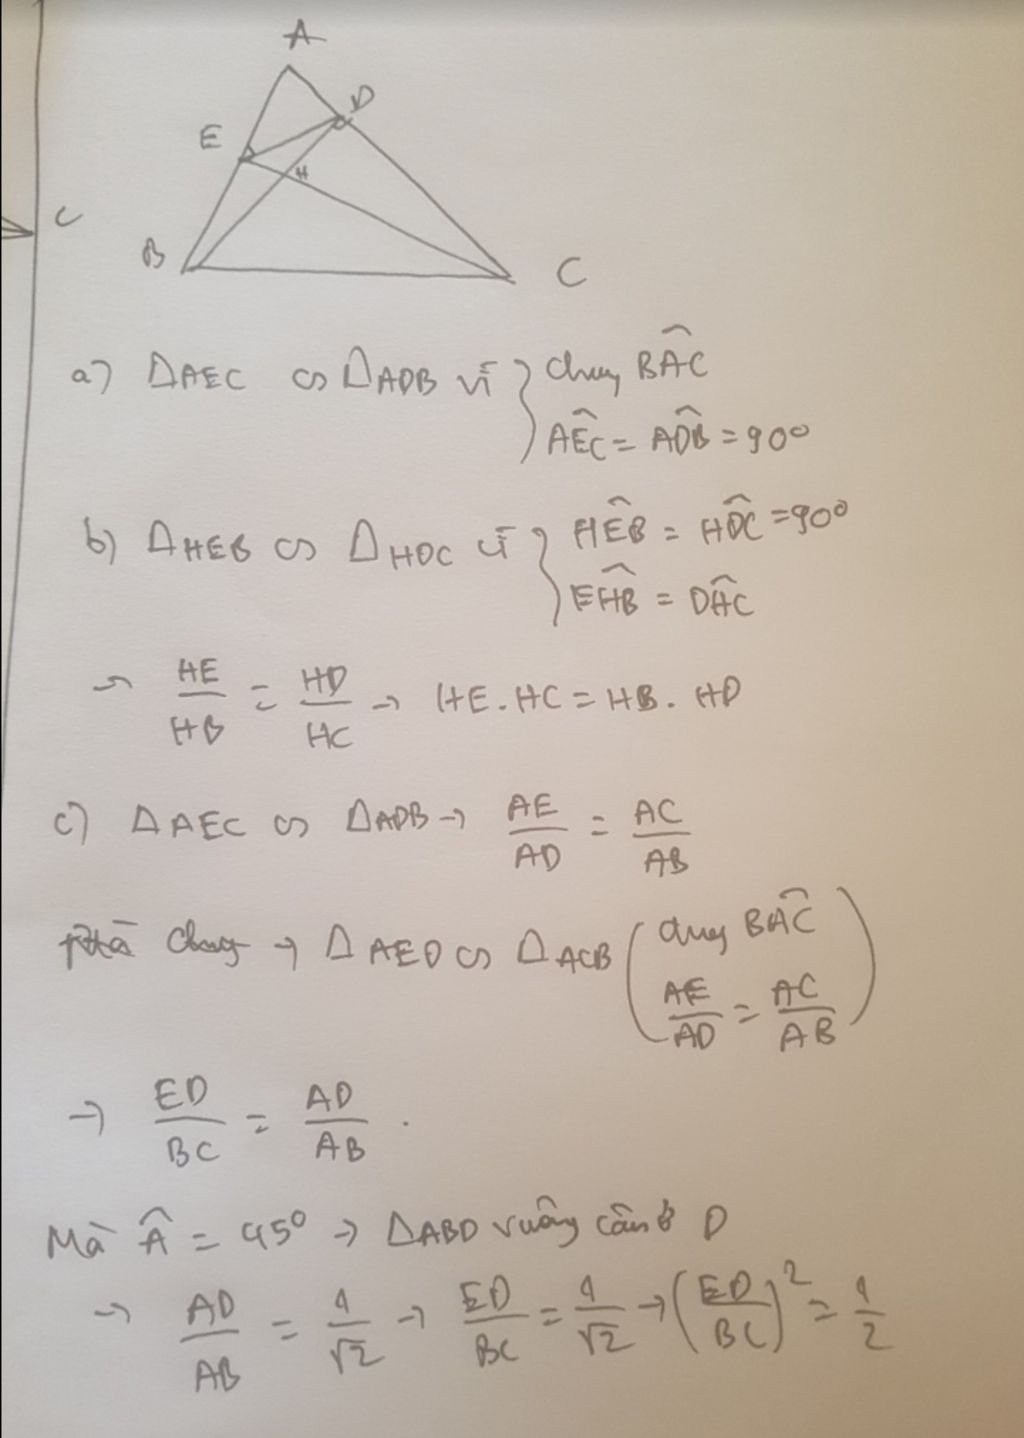 A
D
E
H
C
B
C
a) ΔAEC ∽ ΔADB vì } chung BÂC
AÊC = ADB̂ = 90°
b) ΔHEB ∽ ΔHDC vì } HÊB = HD̂C = 90°
EĤB = DĤC
→ HE/HB = HD/HC → HE.HC = HB.HD
c) ΔAEC ∽ ΔADB → AE/AD = AC/AB
→ ΔAED ∽ ΔACB ( chung BÂC
AE/AD = AC/AB )
→ ED/BC = AD/AB .
Mà Â = 45° → ΔABD vuông cân ở D
→ AD/AB = 1/√2 → ED/BC = 1/√2 → (ED/BC)² = 1/2